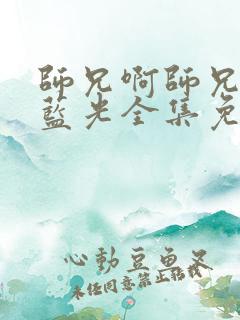 師兄啊師兄
藍光全集免
心動豆魚叉
未任同意禁止轉載